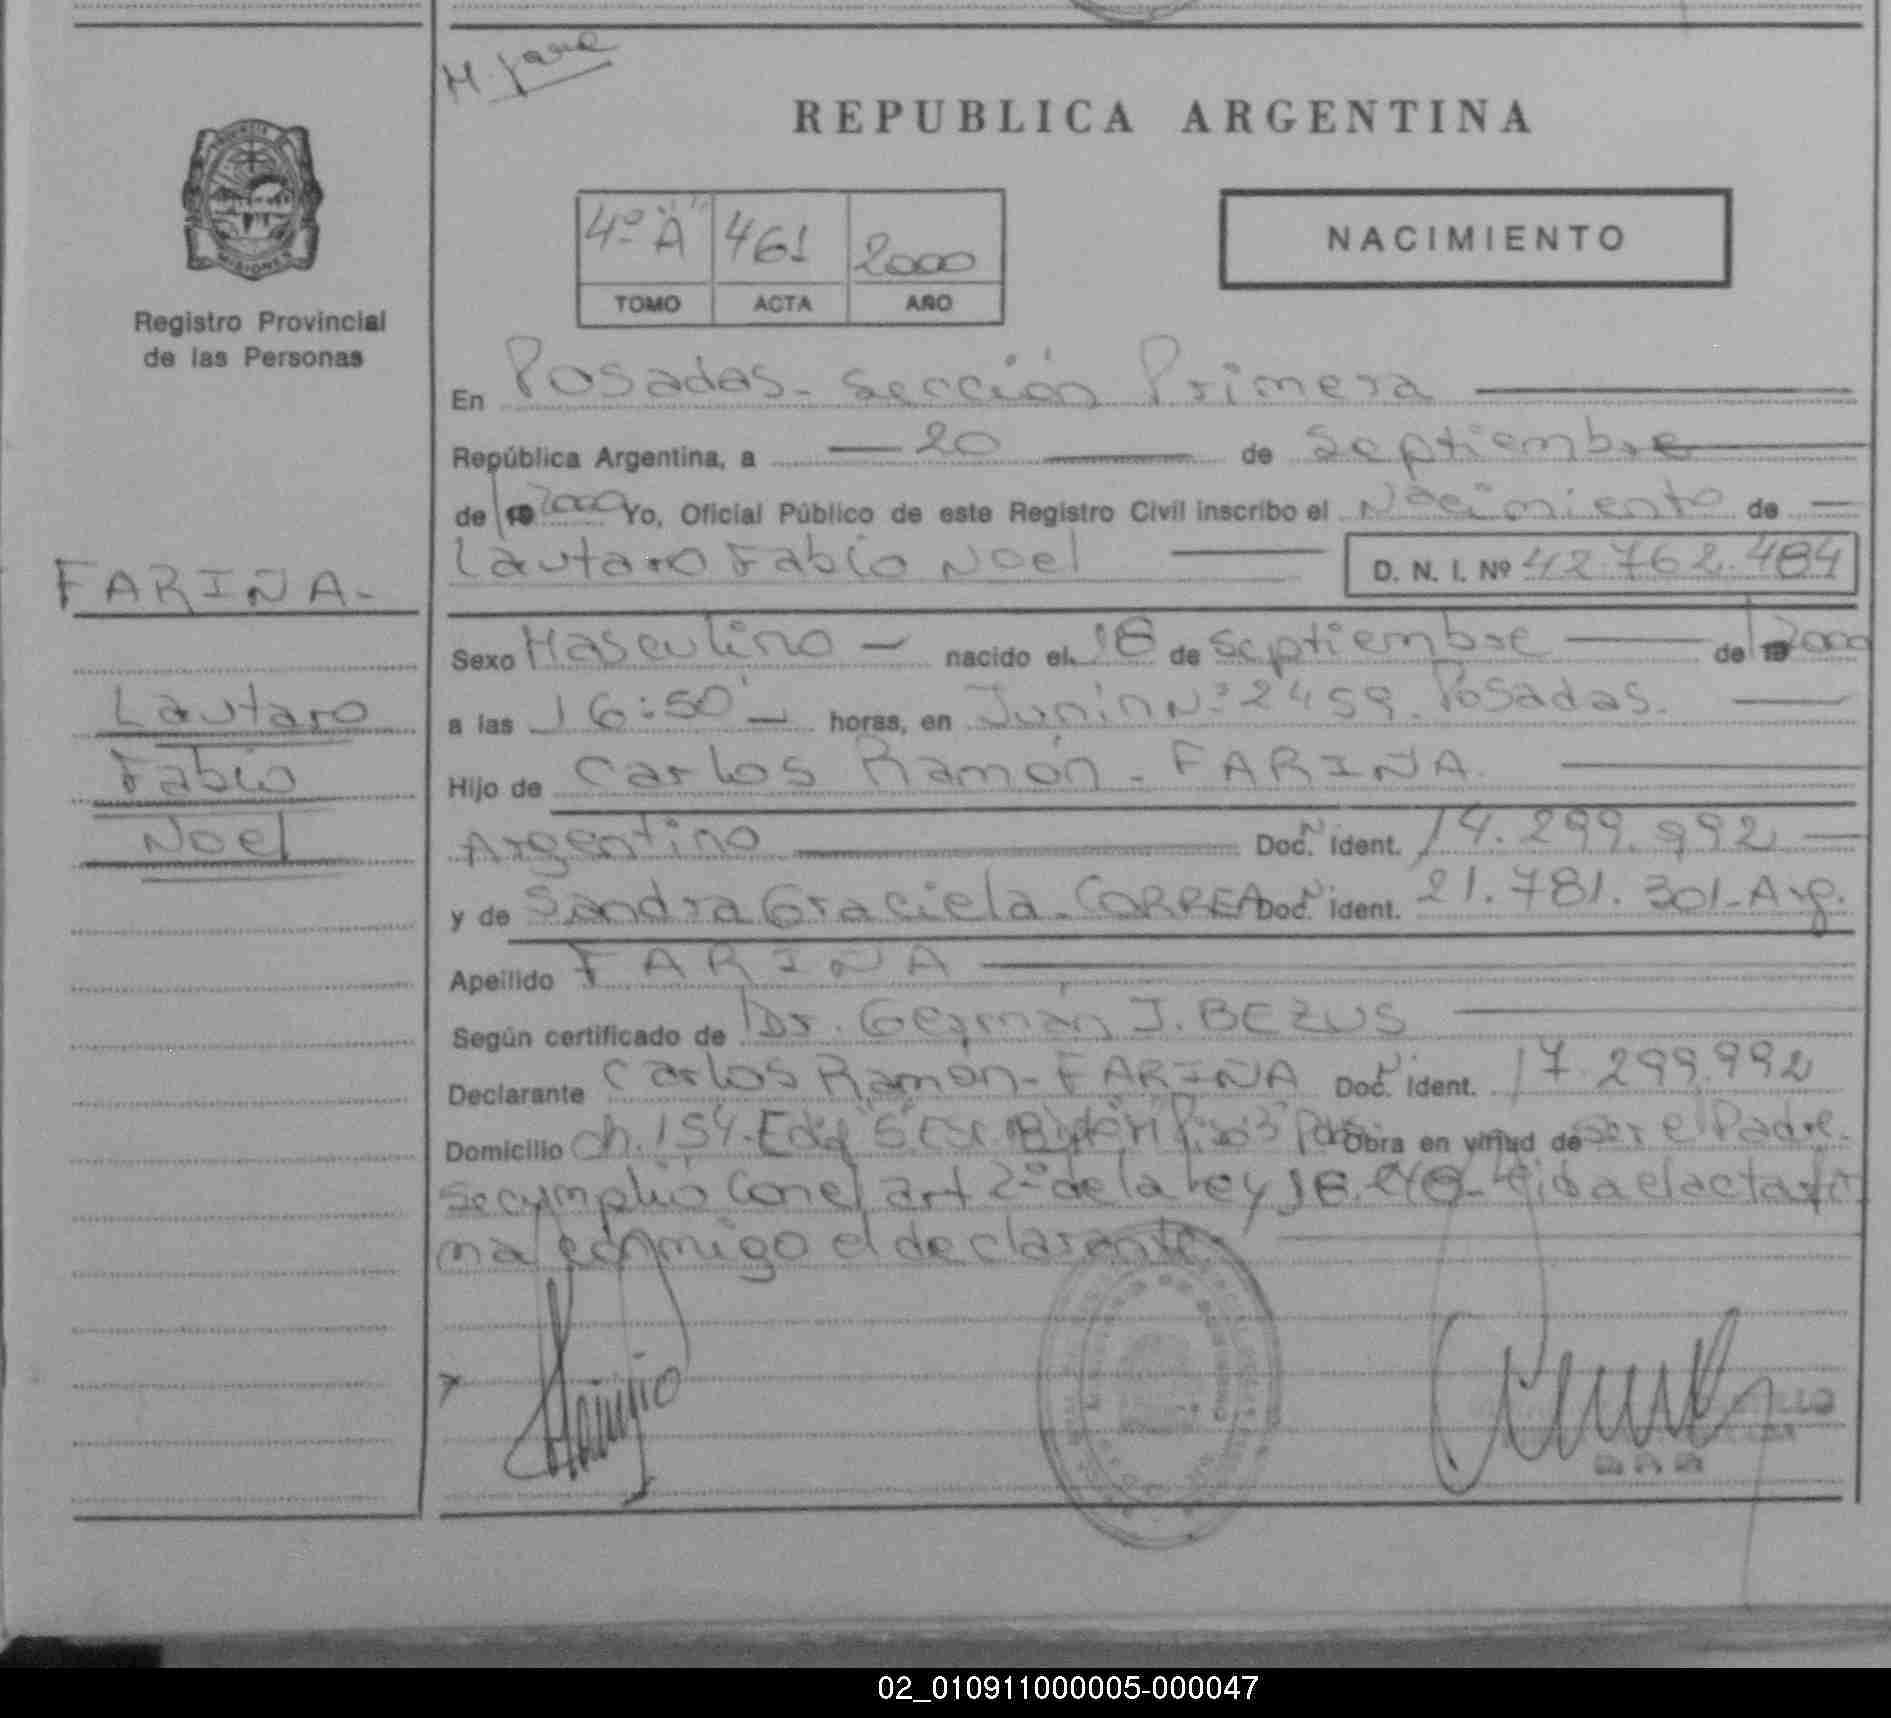 REPUBLICA ARGENTINA
4º "A" 461 2000
TOMO ACTA AÑO
NACIMIENTO
MISIONES
Registro Provincial
de las Personas
En Posadas - Sección Primera
República Argentina, a 20 de Septiembre
de 19 2000 Yo, Oficial Público de este Registro Civil inscribo el Nacimiento de
Lautaro Fabio Noel D. N. I. Nº 42.762.484
FARIÑA-
Lautaro
Fabio
Noel
Sexo Masculino nacido el 18 de Septiembre de 19 2000
a las 16:50 horas, en Junín Nº 2459. Posadas.
Hijo de Carlos Ramón - FARIÑA.
Argentino Doc. Ident. 14.299.992
y de Sandra Graciela - CORREA Doc. Ident. 21.781.301 - Arg.
Apellido FARIÑA
Según certificado de Dr. Germán J. BEZUS
Declarante Carlos Ramón - FARIÑA Doc. Ident. 17.299.992
Domicilio Ch. 154. Edif Piso 3 Obra en virtud de ser el Padre.
Se cumplió con el art 2º de la Ley Leída el acta fir
ma conmigo el declarante
02_010911000005-000047